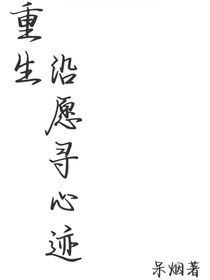 重生
沿愿寻心迹
呆烟著